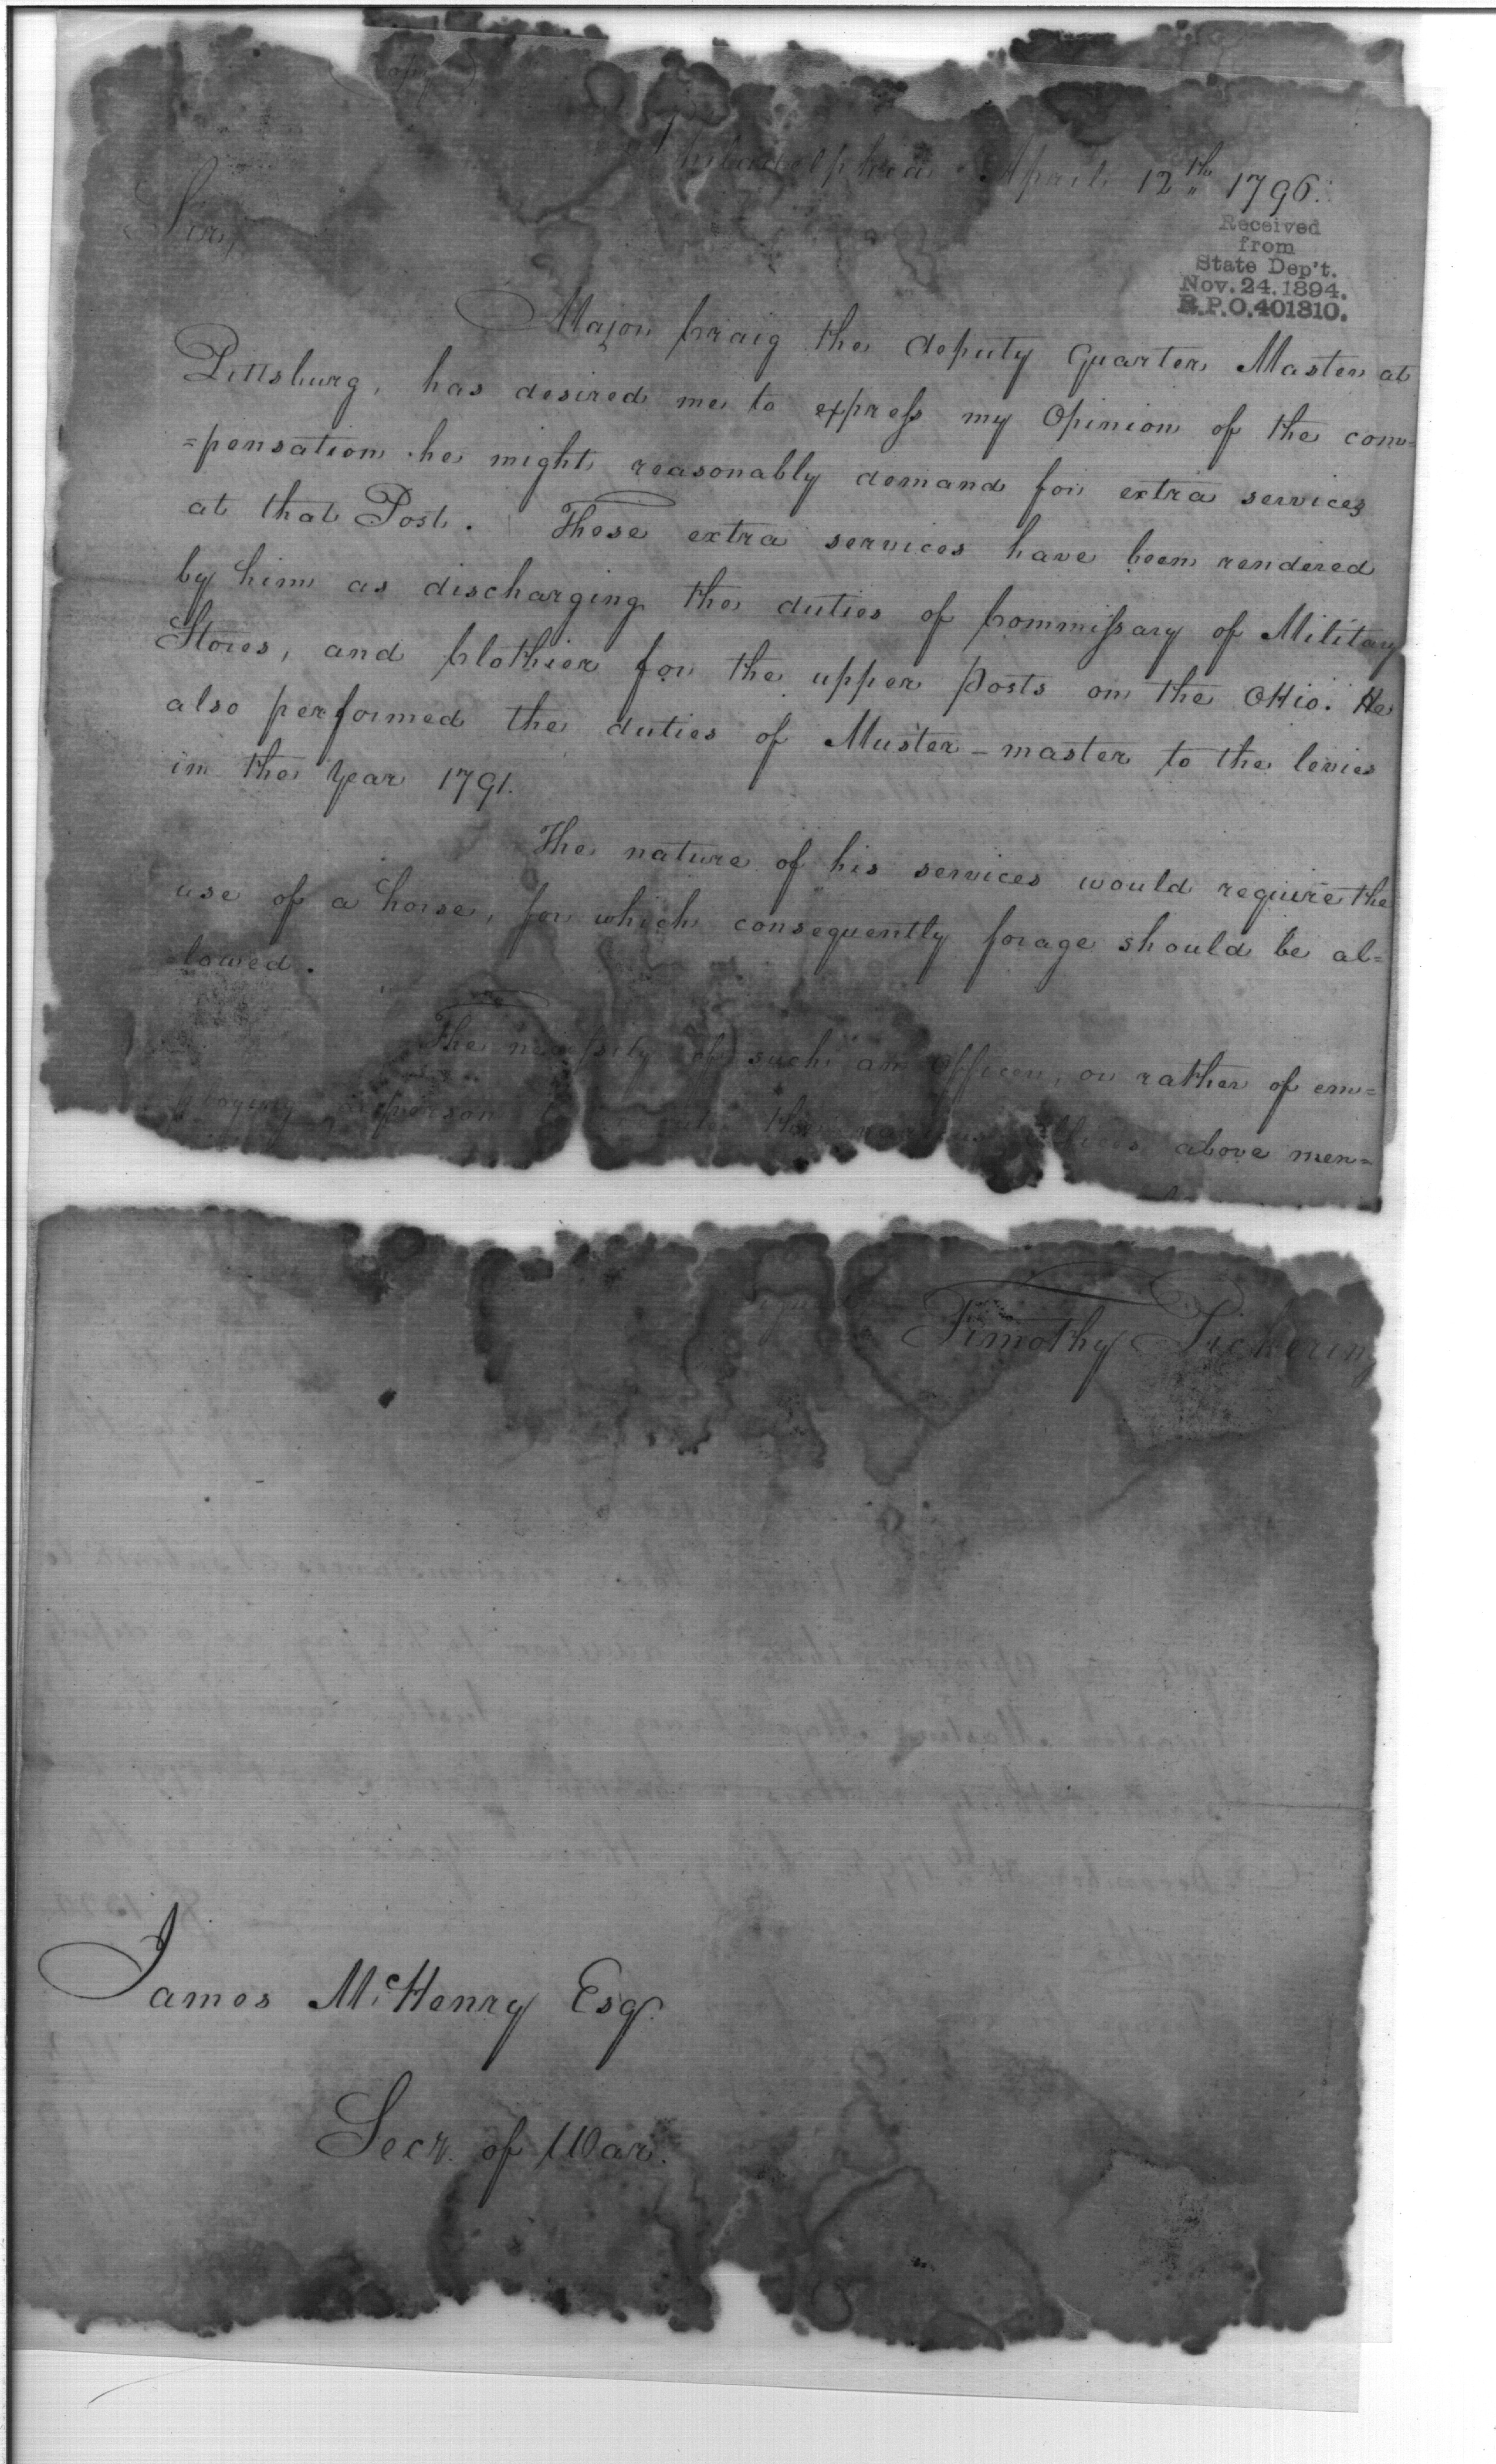 (Copy)
Philadelphia April 12th 1796.
Sir,
Received
from
State Dep't.
Nov. 24. 1894.
R.P.O. 401310.
Major Craig the deputy Quarter Master at
Pittsburg, has desired me to express my Opinion of the com=
=pensation he might reasonably demand for extra services
at that Post. These extra services have been rendered
by him as discharging the duties of Commissary of Military
Stores, and Clothier for the upper posts on the Ohio. He
also performed the duties of Muster-master to the levies
in the Year 1791.
The nature of his services would require the
use of a horse, for which consequently forage should be al=
lowed.
The necessity of such an Officer, or rather of em=
ploying a person the various Offices above men=
Timothy Pickering
James McHenry Esqr.
Secy. of War.